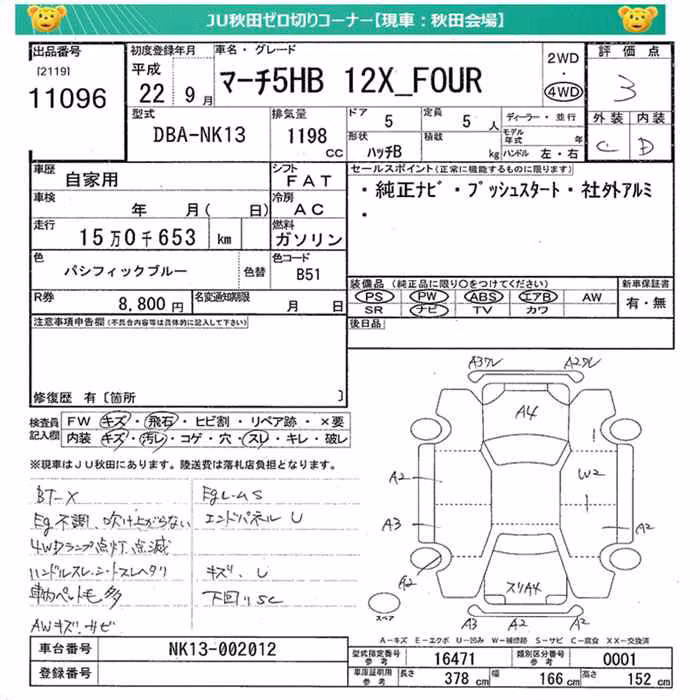 JU秋田ゼロ切りコーナー【現車：秋田会場】
出品番号
[2119]
11096
初度登録年月
平成
22 9月
車名・グレード
マーチ5HB 12X_FOUR
2WD
・
4WD
評価点
3
外装 内装
C D
型式
DBA-NK13
排気量
1198
CC
ドア
5
定員
5 人
形状
ハッチB
積載
kg
ディーラー・並行
モデル年式
年
ハンドル 左・右
車歴
自家用
シフト
FAT
車検
年 月( 日)
冷房
AC
走行
15万0千653 km
燃料
ガソリン
色
パシフィックブルー
色替
色コード
B51
R券
8,800円
名変通知期限
月 日
セールスポイント(正常に機能するものに限ります)
・純正ナビ・プッシュスタート・社外アルミ
・
装備品 (純正品に限り○をつけてください)
PS PW ABS エアB AW
SR ナビ TV カワ
新車保証書
有・無
後日品
注意事項申告欄(不具合内容等は具体的に記入して下さい)
修復歴 有〔箇所 〕
検査員
記入欄
FW キズ・飛石・ヒビ割・リペア跡・×要
内装 キズ・汚レ・コゲ・穴・スレ・キレ・破レ
※現車はJU秋田にあります。陸送費は落札店負担となります。
BT-X
Eg不調、吹け上がらない
4WDランプ点灯、点滅
ハンドルスレ、シートスレヘタリ
車内ペット毛多
AWキズ、サビ
エンドパネルU
キズ、U
下回りSC
A3ワレ
A2ワレ
A4
A2
A3
W2
A2
A2
スリA4
A3 A2 A2
スペア
A-キズ E-エクボ U-凹み W-補修跡 S-サビ C-腐食 XX-交換済
車台番号
NK13-002012
登録番号
型式指定番号
参考
16471
類別区分番号
参考
0001
車庫証明用
参考
長さ 378 cm
幅 166 cm
高さ 152 cm